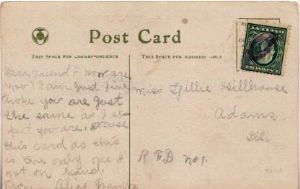 Post Card
THIS SPACE FOR CORRESPONDENCE
THIS SPACE FOR ADDRESS ONLY
Dear friend: how are
you? I am just fine
hope you are just
the same as I
but you are.
this card as this
is the only one I
got on hand
Alice
Miss Lillie Gillhouse
Adams
Ills
R F D No 1.